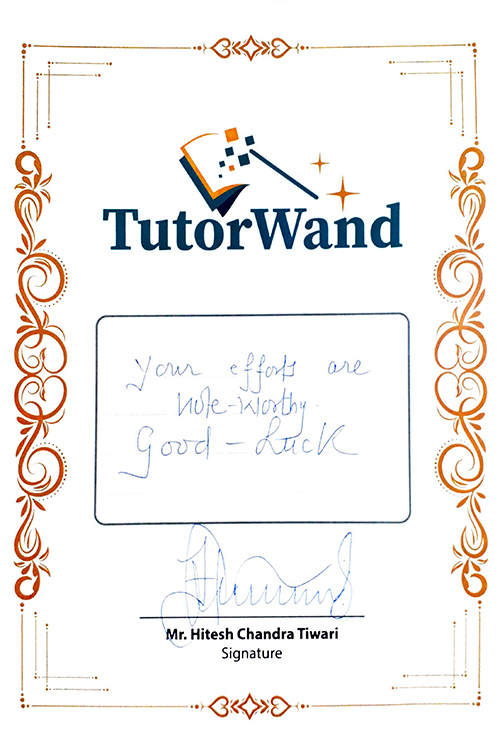 TutorWand
Your efforts are
Note-worthy.
Good - Luck
Mr. Hitesh Chandra Tiwari
Signature